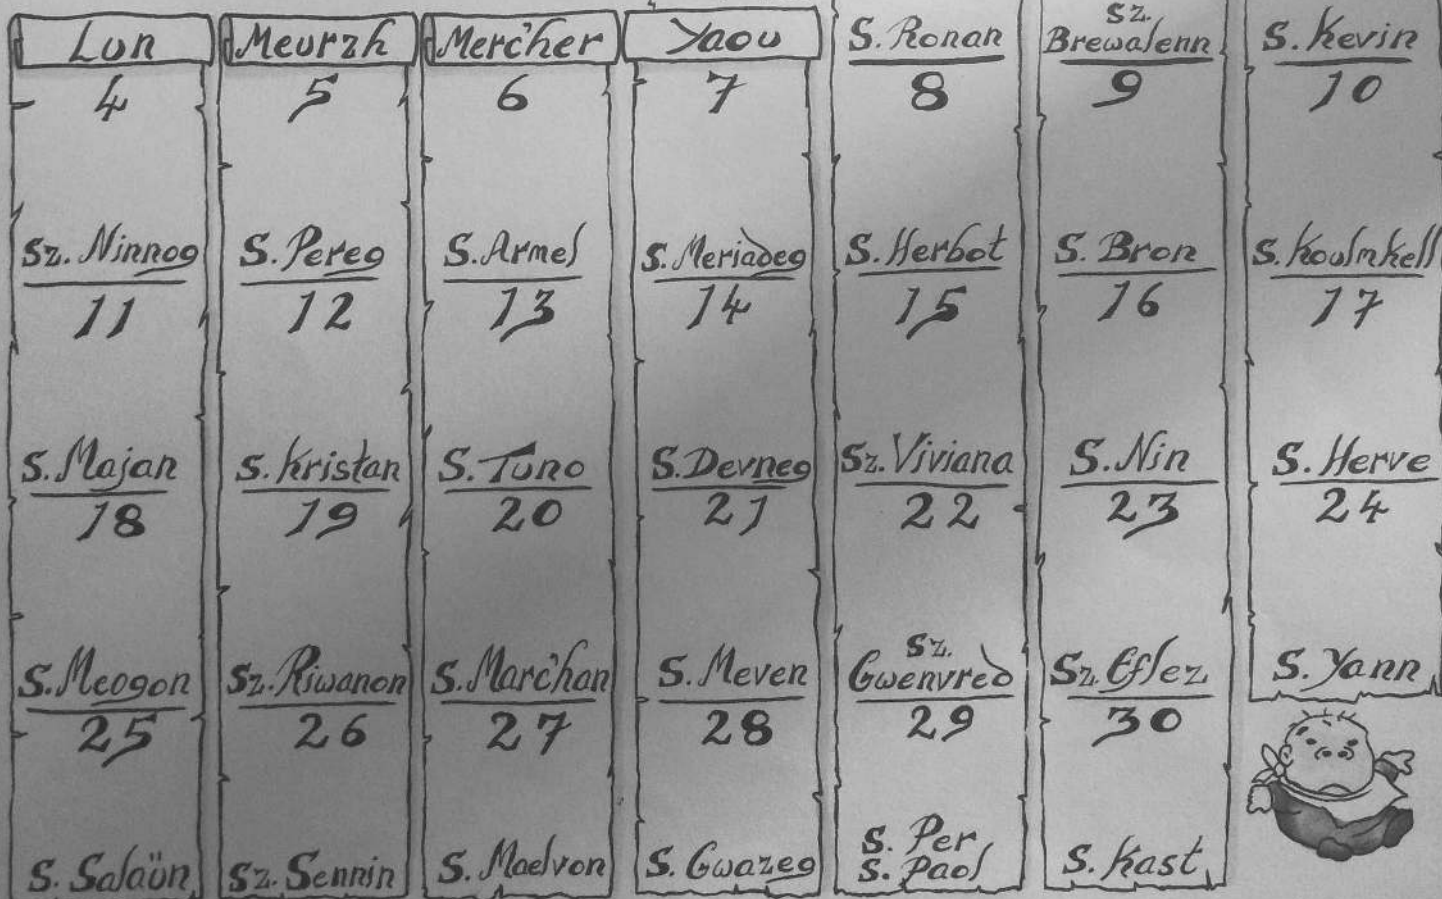 Lun Meurzh Merc'her Yaou S. Ronan Sz. Brewalenn S. Kevin
4 5 6 7 8 9 10
Sz. Ninnog S. Pereg S. Armel S. Meriadeg S. Herbot S. Bron S. Koulmkell
11 12 13 14 15 16 17
S. Majan S. Kristan S. Tuno S. Devneg Sz. Viviana S. Nin S. Herve
18 19 20 21 22 23 24
S. Meogon Sz. Riwanon S. Marc'han S. Meven Sz. Gwenvred Sz. Eflez S. Yann
25 26 27 28 29 30
S. Salaün Sz. Sennin S. Maelvon S. Gwazeg S. Per S. Paol S. Kast